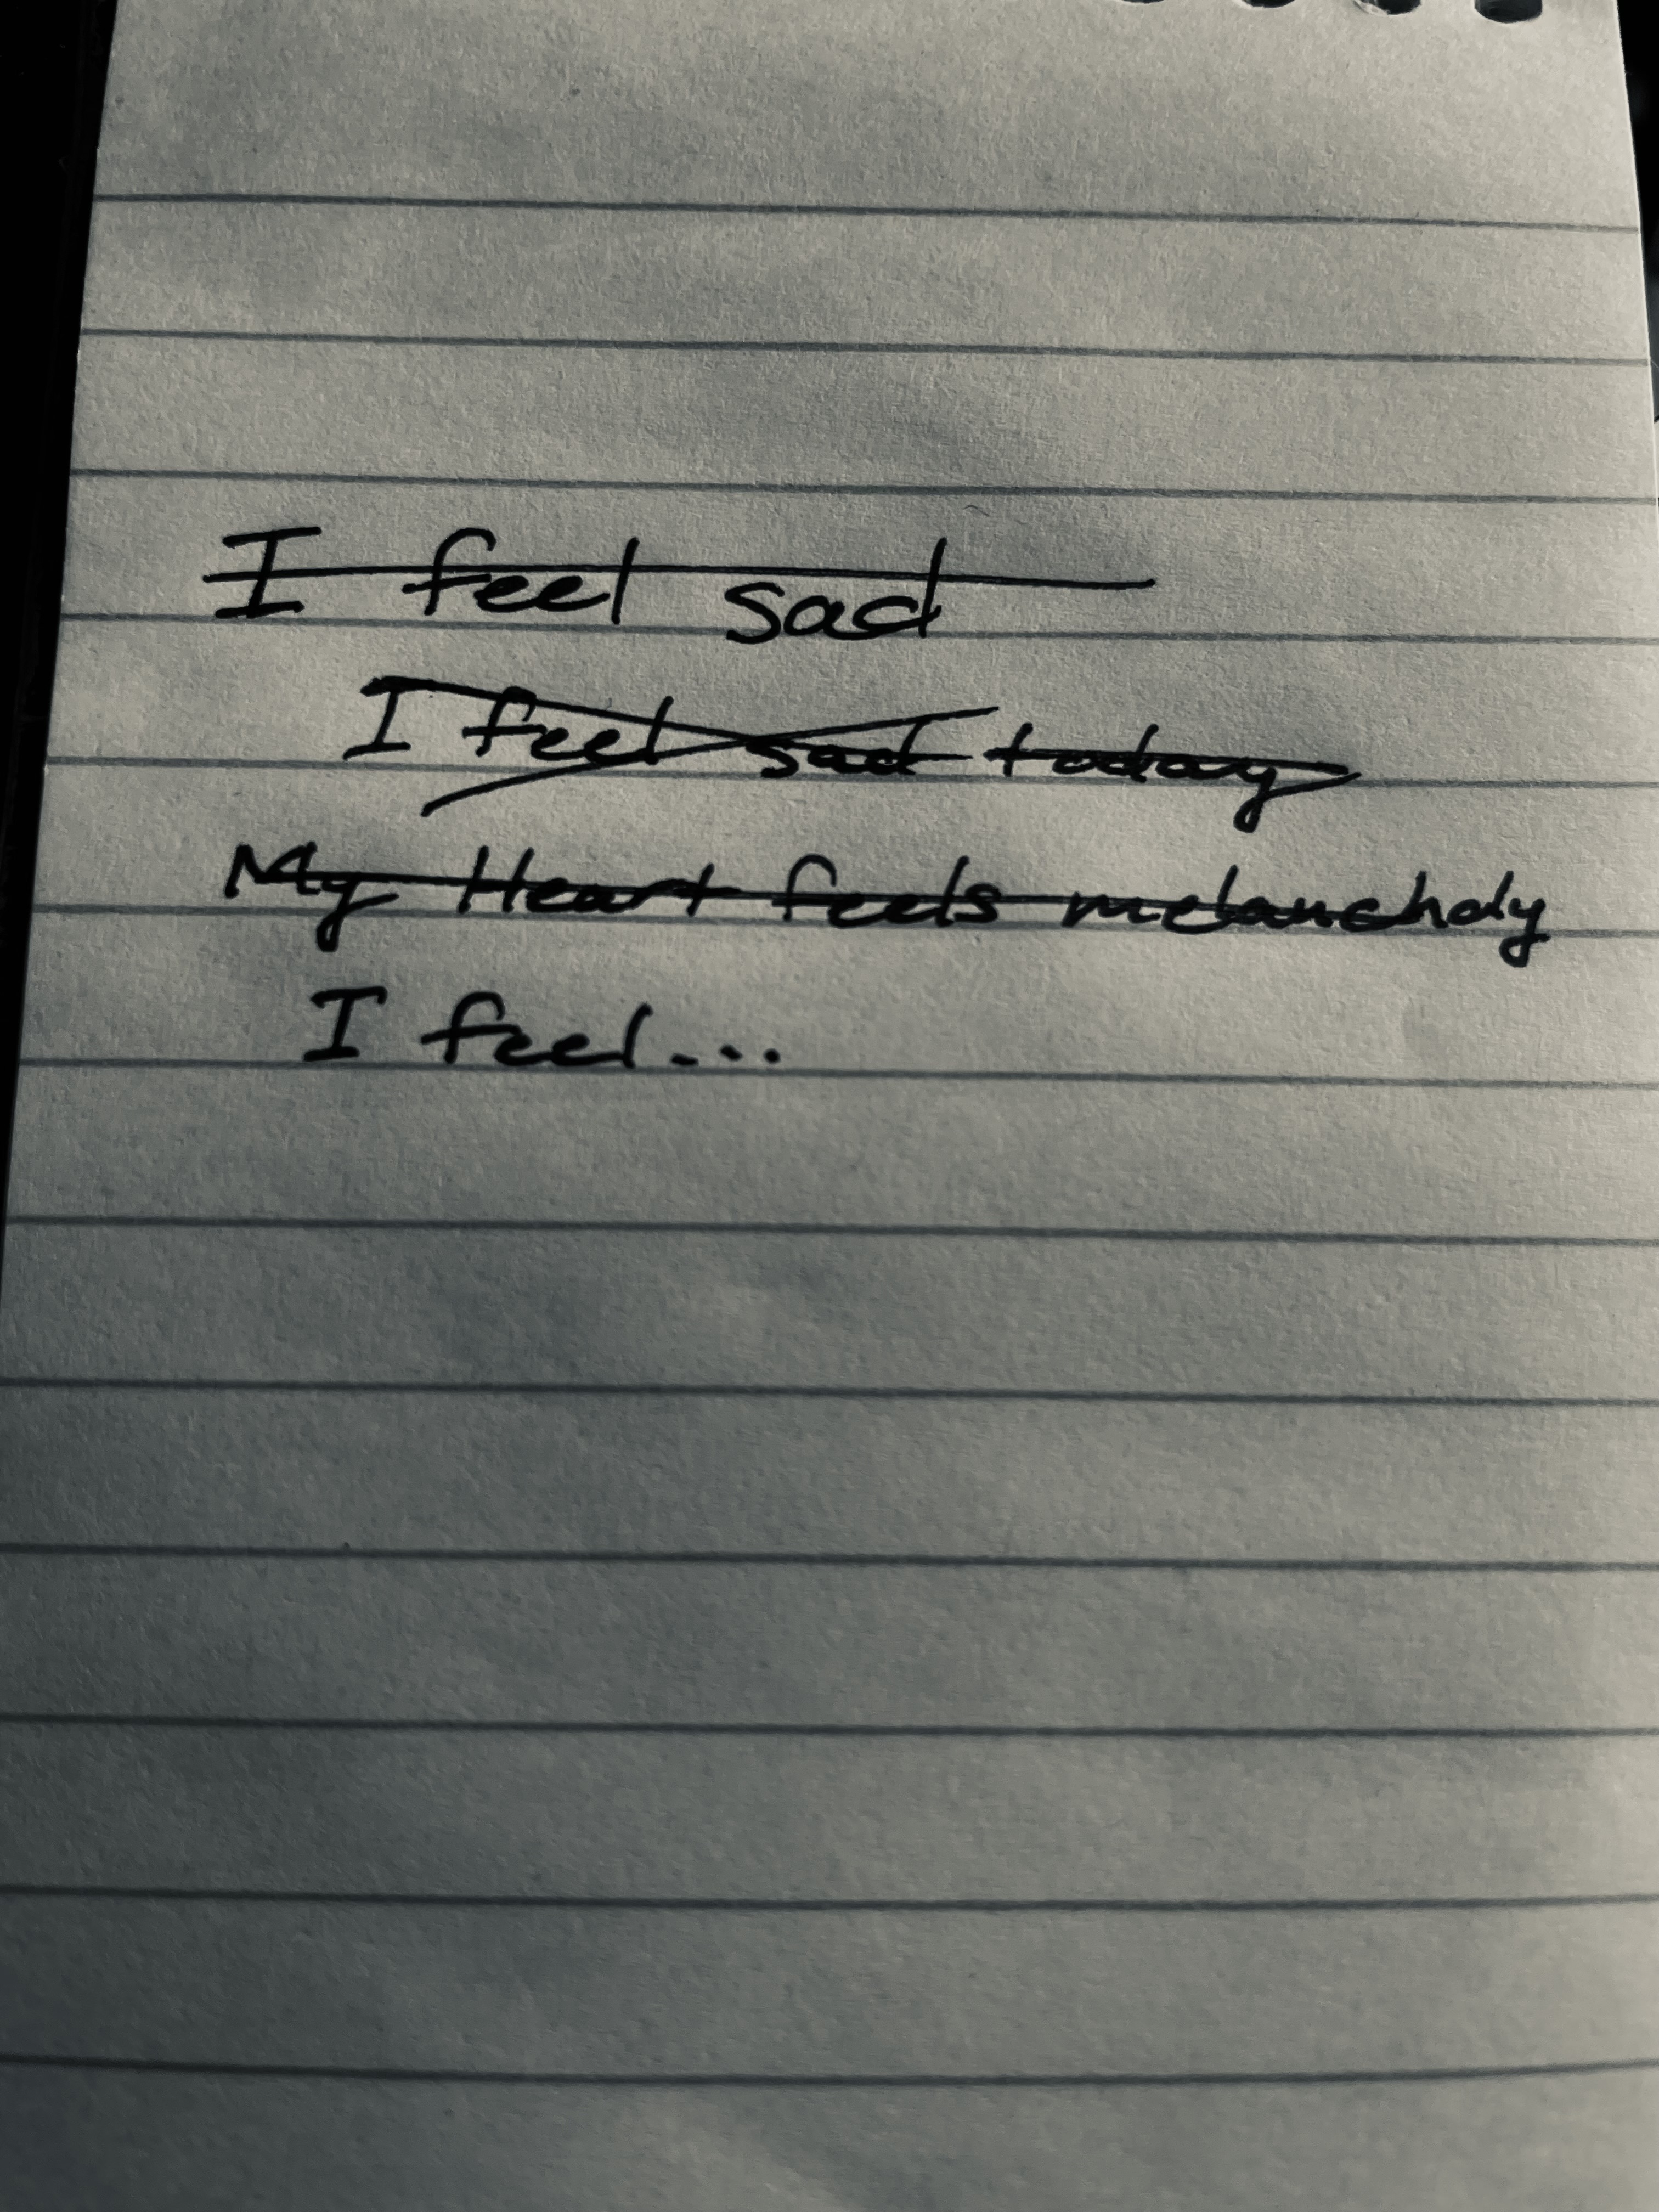 I feel sad
I feel sad today
My Heart feels melancholy
I feel...